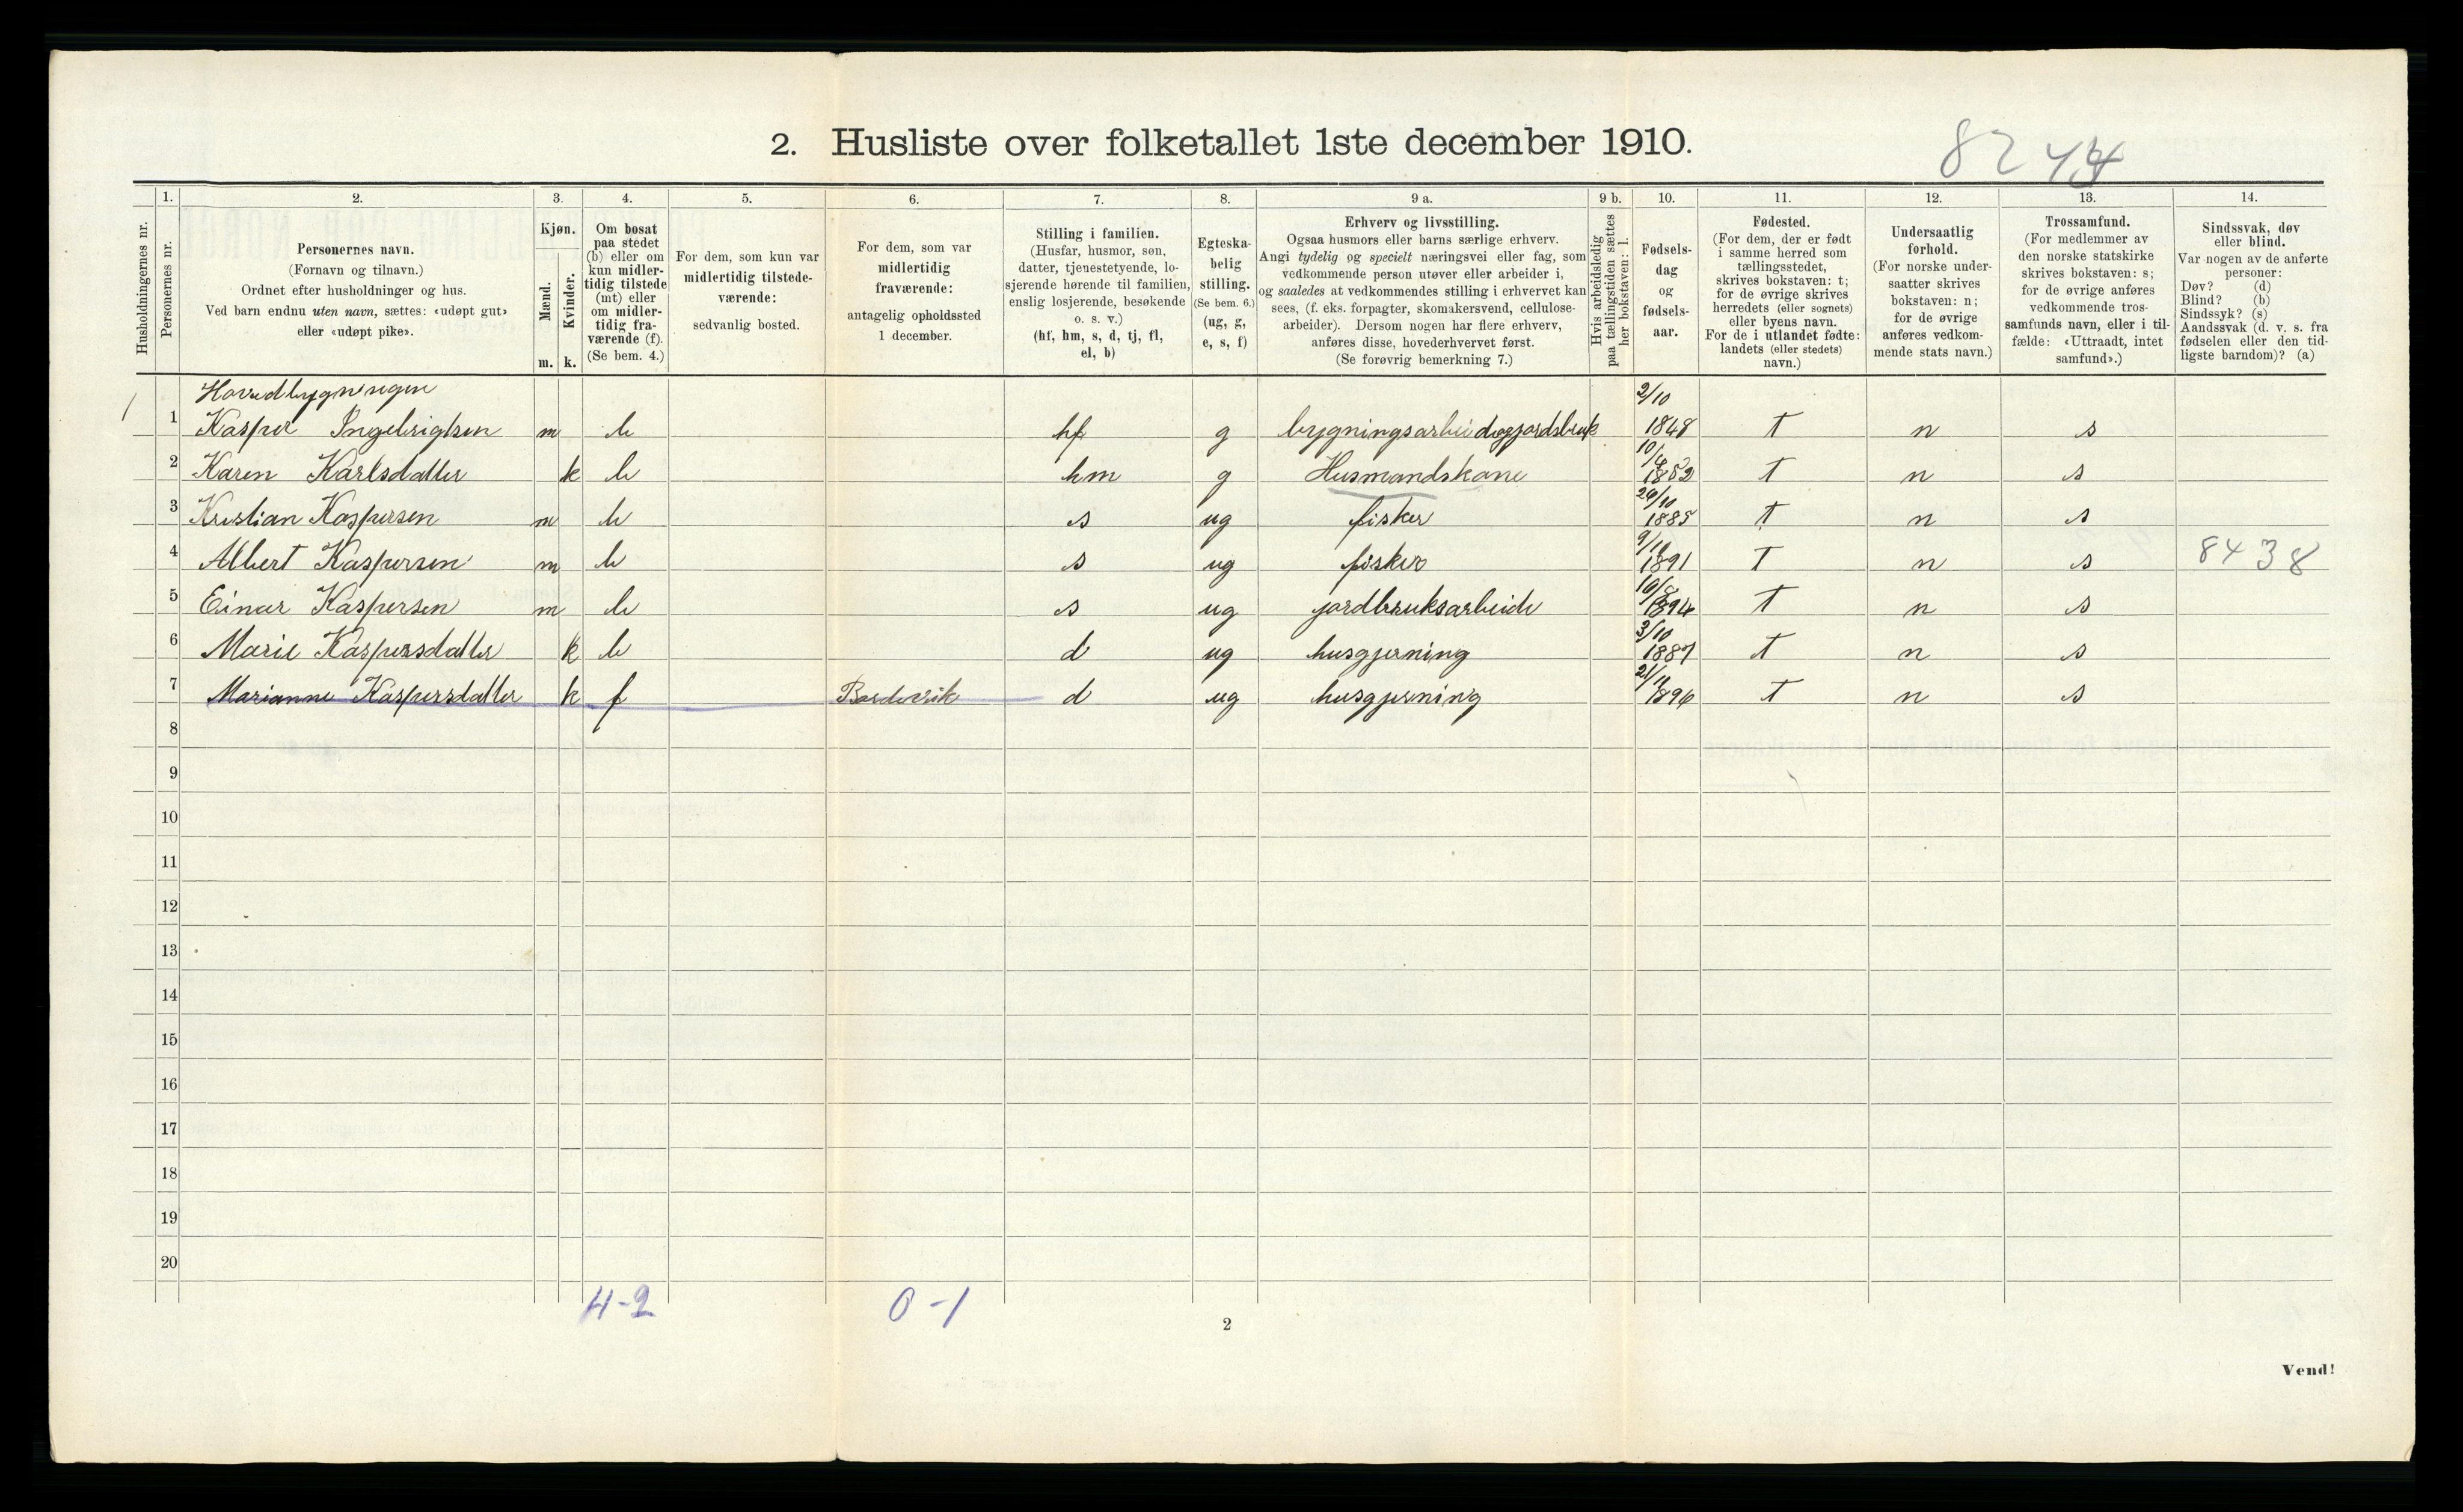 2. Husliste over folketallet 1ste december 1910.
82 44
Husholdningernes nr.
1. Personernes nr.
2. Personernes navn. (Fornavn og tilnavn.) Ordnet efter husholdninger og hus. Ved barn endnu uten navn, sættes: «udøpt gut» eller «udøpt pike».
3. Kjøn. Mænd. m. Kvinder. k.
4. Om bosat paa stedet (b) eller om kun midlertidig tilstede (mt) eller om midlertidig fraværende (f). (Se bem. 4.)
5. For dem, som kun var midlertidig tilstedeværende: sedvanlig bosted.
6. For dem, som var midlertidig fraværende: antagelig opholdssted 1 december.
7. Stilling i familien. (Husfar, husmor, søn, datter, tjenestetyende, losjerende hørende til familien, enslig losjerende, besøkende o. s. v.) (hf, hm, s, d, tj, fl, el, b)
8. Egteskabelig stilling. (Se bem. 6.) (ug, g, e, s, f)
9 a. Erhverv og livsstilling. Ogsaa husmors eller barns særlige erhverv. Angi tydelig og specielt næringsvei eller fag, som vedkommende person utøver eller arbeider i, og saaledes at vedkommendes stilling i erhvervet kan sees, (f. eks. forpagter, skomakersvend, cellulosearbeider). Dersom nogen har flere erhverv, anføres disse, hovederhvervet først. (Se forøvrig bemerkning 7.)
9 b. Hvis arbeidsledig paa tællingstiden sættes her bokstaven: l.
10. Fødselsdag og fødselsaar.
11. Fødested. (For dem, der er født i samme herred som tællingsstedet, skrives bokstaven: t; for de øvrige skrives herredets (eller sognets) eller byens navn. For de i utlandet fødte: landets (eller stedets) navn.)
12. Undersaatlig forhold. (For norske undersaatter skrives bokstaven: n; for de øvrige anføres vedkommende stats navn.)
13. Trossamfund. (For medlemmer av den norske statskirke skrives bokstaven: s; for de øvrige anføres vedkommende trossamfunds navn, eller i tilfælde: «Uttraadt, intet samfund».)
14. Sindssvak, døv eller blind. Var nogen av de anførte personer: Døv? (d) Blind? (b) Sindssyk? (s) Aandssvak (d. v. s. fra fødselen eller den tidligste barndom)? (a)
Hovedbygningen
1 1 Kasper Ingebrigtsen m b hf g bygningsarbeid og jordsbruk 2/10 1848 t n s
2 Karen Karlsdatter k b hm g Husmandskone 10/4 1852 t n s
3 Kristian Kaspersen m b s ug fisker 1885 t n s
4 Albert Kaspersen m b s ug fisker 1891 T n s 8438
5 Einar Kaspersen m b s ug jordbruksarbeide 1894 t n s
6 Marie Kaspersdatter k b d ug husgjerning 3/10 1887 t n s
7 Marianne Kaspersdatter k f d ug husgjerning 1896 t n s
8
9
10
11
12
13
14
15
16
17
18
19
20
4-2 0-1
2
Vend!